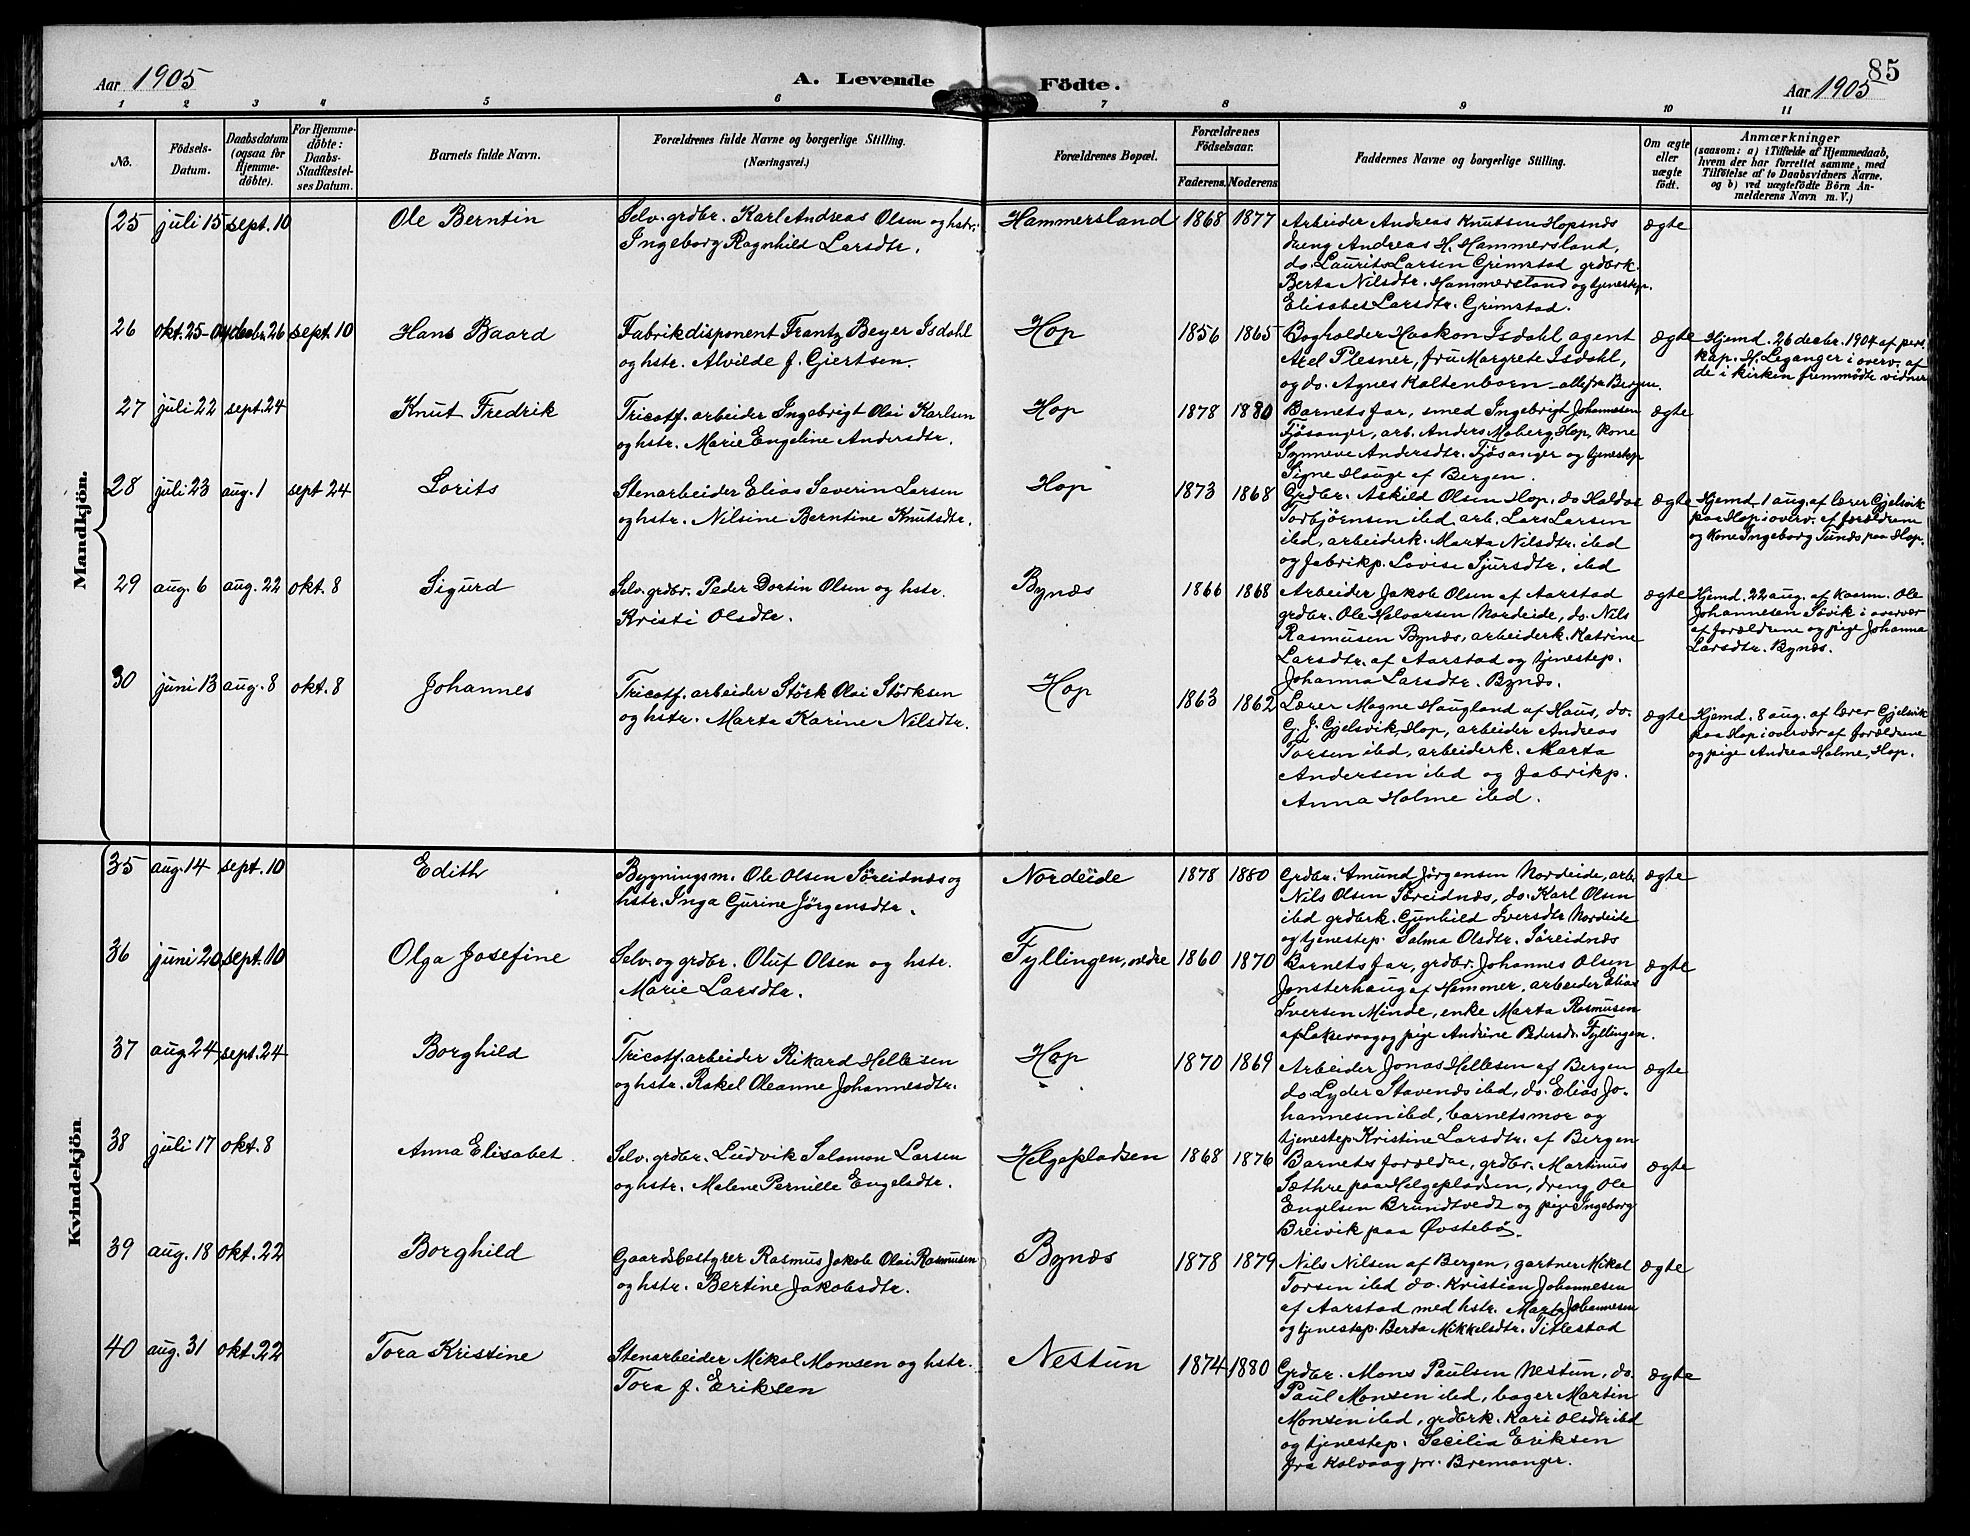 Aar 1905
A. Levende Födte.
85
Aar 1905
1 2 3 4 5 6 7 8 9 10 11
No.
Födsels-
Datum.
Daabsdatum
(ogsaa for
Hjemme-
døbte).
For Hjemme-
døbte:
Daabs-
Stadfæstel-
ses Datum.
Barnets fulde Navn.
Forældrenes fulde Navne og borgerlige Stilling.
(Næringsvei.)
Forældrenes Bopæl.
Forældrenes
Födselsaar.
Faderens. Moderens
Faddernes Navne og borgerlige Stilling.
Om ægte
eller
uægte
født.
Anmærkninger
(saasom: a) i Tilfælde af Hjemmedaab,
hvem der har forrettet samme, med
Tilføielse af to Daabsvidners Navne,
og b) ved uægtefödte Börn An-
melderens Navn m. V.)
Mandkjön.
25 juli 15 sept. 10 Ole Berntin
Selv. grdbr. Karl Andreas Olsen og hstr.
Ingeborg Ragnhild Larsdtr.
Hammersland 1868 1877
Arbeider Andreas Knutsen Hopsnæs
dreng Andreas H. Hammersland,
do. Laurits Larsen Grimstad grdbrk.
Berta Nilsdtr. Hammersland og tjenestep.
Elisabet Larsdtr. Grimstad.
ægte
26 okt. 25-04 decbr. 26 sept. 10 Hans Baard
Fabrikdisponent Frantz Beyer Isdahl
og hstr. Alvilde f. Gjertsen.
Hop 1856 1865
Bogholder Haakon Isdahl agent
Axel Plesner, fru Margrete Isdahl,
og do. Agnes Kaltenborn – alle fra Bergen.
ægte
Hjemd. 26 decbr. 1904 af pers.
kap. H. Leganger i overv. af
de i kirken fremmødte vidner
27 juli 22 sept. 24 Knut Fredrik
Tricotf. arbeider Ingebrigt Olai Karlsen
og hstr. Marie Engeline Andersdtr.
Hop 1878 1880
Barnets far, smed Ingebrigt Johannesen
Fjøsanger, arb. Anders Moberg Hop, kone
Synneve Andersdtr. Fjøsanger og tjenestep
Signe Hauge af Bergen.
ægte
28 juli 23 aug. 1 sept 24 Lorits
Stenarbeider Elias Severin Larsen
og hstr. Nilsine Berntine Knutsdtr.
Hop 1873 1868
Grdbr. Askild Olsen Hop, do Haldor
Torbjørnsen ibd. arb. Lars Larsen
ibd, arbeiderk. Marta Nilsdtr. ibd
og fabrikp. Lovise Sjursdtr. ibd
ægte
Hjemd. 1 aug. af lærer Gjelsvik
paa Hop i overv. af forældrene
og Kone Ingeborg Tunæs paa Hop.
29 aug. 6 aug. 22 okt. 8 Sigurd
Selv. grdbr. Peder Dortin Olsen og hstr.
Kristi Olsdtr.
Bynæs 1866 1868
Arbeider Jakob Olsen af Aarstad
grdbr. Ole Halvorsen Nordeide, do. Nils
Rasmusen Bynæs, arbeiderk. Katrine
Larsdtr. af Aarstad og tjenestep.
Johanna Larsdtr. Bynæs.
ægte
Hjemd. 22 aug. af Ole
Johannesen Søvik i overvær
af forældrene og pige Johanna
Larsdtr. Bynæs.
30 juni 13 aug. 8 okt. 8 Johannes
Tricotf. arbeider Størk Olai Størksen
og hstr. Marta Karine Nilsdtr.
Hop 1863 1862
Lærer Magne Haugland af Haus, do.
G. J. Gjelsvik, Hop, arbeider Andreas
Torsen ibd, arbeiderk. Marta
Andersen ibd og fabrikp.
Anna Holme ibd.
ægte
Hjemd. 8 aug. af lærer Gjelsvik
paa Hop i overvær af forældrene
og pige Andrea Holme, Hop.
Kvindekjön
35 aug. 14 sept. 10 Edith
Bygningsm. Ole Olsen Søreidnæs og
hstr. Inga Gurine Jørgensdtr.
Nordeide 1878 1880
Grdbr. Amund Jørgensen Nordeide, arb.
Nils Olsen Søreidnæs, do. Karl Olsen
ibd grdbrk. Gunhild Iversdtr Nordeide
og tjenestep. Salma Olsdtr. Søreidnæs
ægte
36 juni 20 sept. 10 Olga Josefine
Selv. og grdbr. Oluf Olsen og hstr.
Marie Larsdtr.
Fyllingen, nedre 1860 1870
Barnets far, grdbr. Johannes Olsen
Jonsterhaug af Hammer, arbeider Elias
Iversen Minde, enke Marta Rasmusen
af Laksevaag og pige Andrine Pedersd. Fyllingen.
ægte
37 aug 24 sept. 24 Borghild
Tricotf. arbeider Rikard Hellesen
og hstr. Rakel Oleanne Johannesdtr.
Hop 1870 1869
Arbeider Jonas Hellesen af Bergen
do Lyder Stavenæs ibd, do. Elias Jo-
hannesen ibd, barnets mor og
tjenestep Kristine Larsdtr. af Bergen
ægte
38 juli 17 okt. 8 Anna Elisabet
Selv. grdbr. Ludvik Salamon Larsen
og hstr. Malene Pernille Engelsdtr.
Helgepladsen 1868 1876
Barnets forældre, grdbr. Martinus
Sæthre paa Helgepladsen, dreng Ole
Engelsen Brundtvedt og pige Ingeborg
Breivik paa Øvstebø.
ægte
39 aug. 18 okt. 22 Borghild
Gaardsbestyrer Rasmus Jakob Olai Rasmusen
og hstr. Bertine Jakobsdtr.
Bynæs 1878 1879
Nils Nilsen af Bergen, gartner Mikal
Torsen ibd do. Kristian Johannesen
af Aarstad med hstr. Marta Johannesen
og tjenestep. Berta Mikkelsdtr. Titlestad
ægte
40 aug. 31 okt. 22 Tora Kristine
Stenarbeider Mikal Monsen og hstr.
Tora f. Eriksen
Nestun 1874 1880
Grdbr. Mons Paulsen Nestun, do.
Paul Monsen ibd, bager Martin
Monsen ibd, grdbrk. Kari Olsdtr ibd
og tjenestep. Secilia Eriksen
fra Kalvaag pr. Bremanger.
ægte